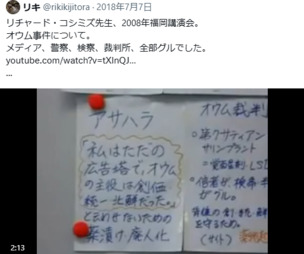 リキ @rikikijitora · 2018年7月7日
リチャード・コシミズ先生、2008年福岡講演会。
オウム事件について。
メディア、警察、検察、裁判所、全部グルでした。
youtube.com/watch?v=tXInQJ…
...
アサハラ
「私はただの
広告塔で、オウム
の主役は創価
統一北鮮だった。」
と言わせないための
薬漬け廃人化
オウム裁判
○第7サティアン
サリンプラント
を守るため。
(サイト)
2:13